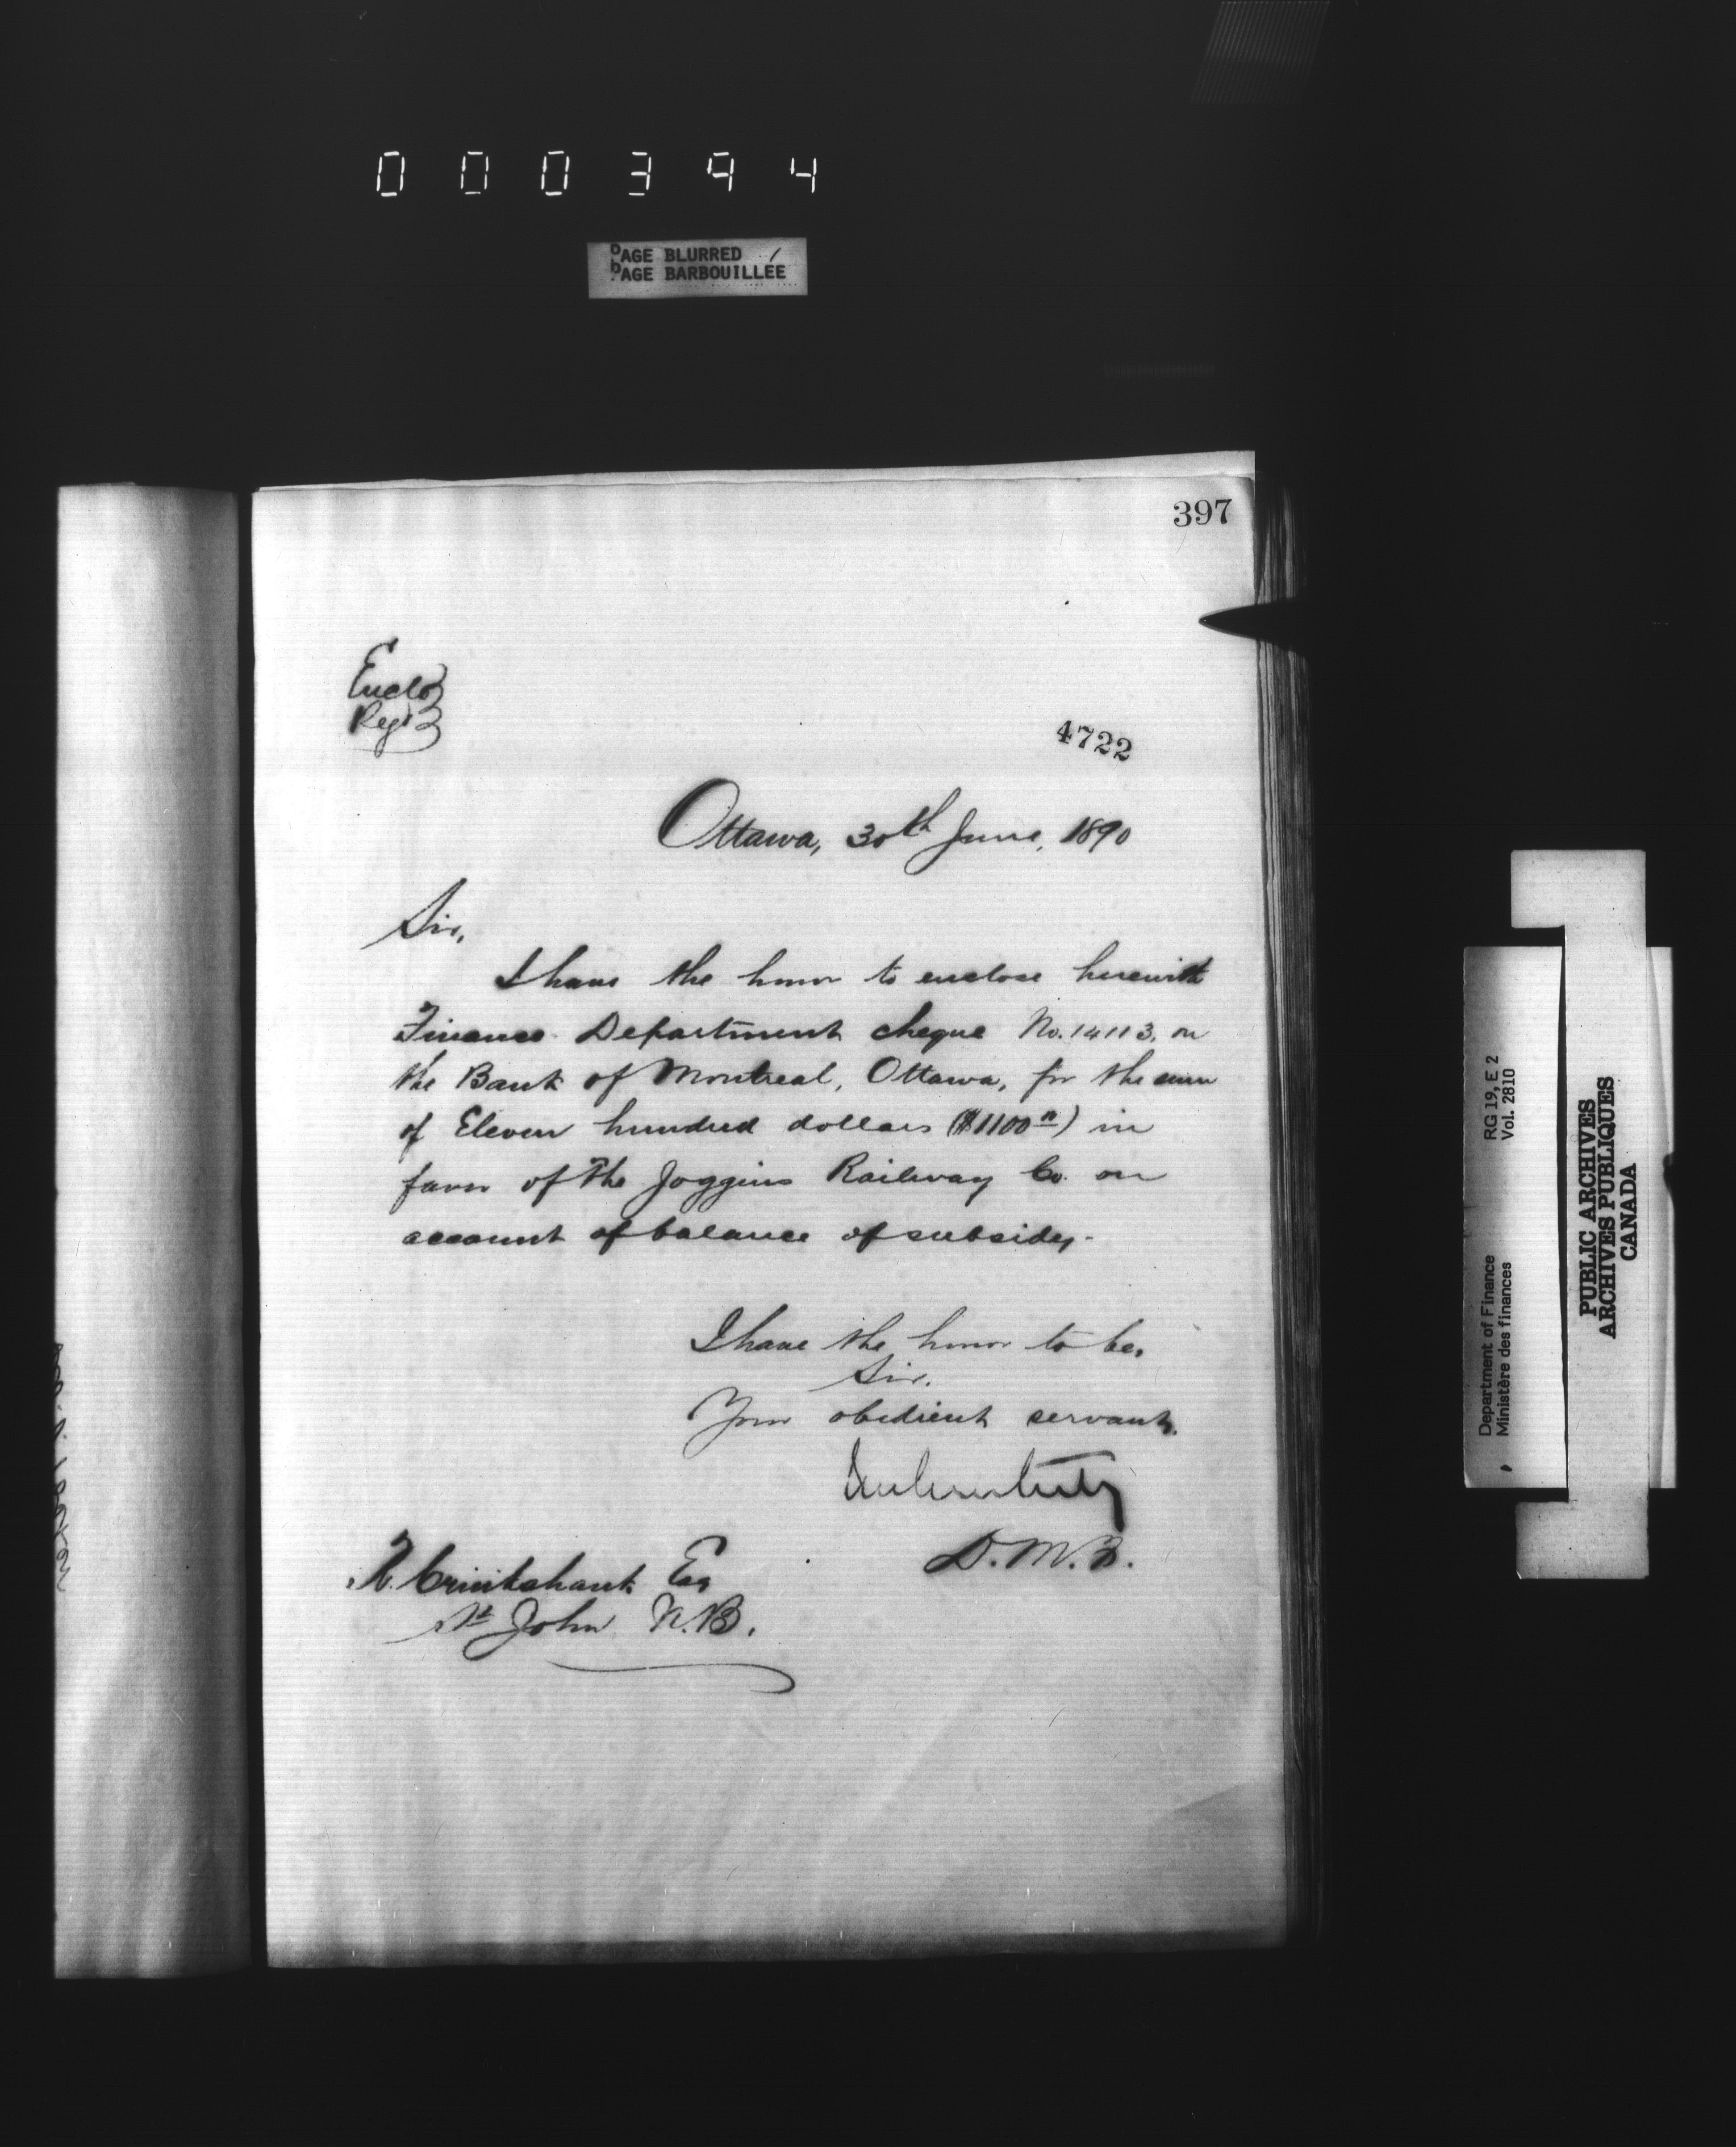 000394
PAGE BLURRED
PAGE BARBOUILLÉE
397
Enclo
Regd
4722
Ottawa, 30th June, 1890
Sir,
I have the honor to enclose herewith
Finance Department cheque No. 14113, on
the Bank of Montreal, Ottawa, for the sum
of Eleven hundred dollars ($1100 00) in
favor of the Joggins Railway Co. on
account of balance of subsidy.
I have the honor to be,
Sir.
Your obedient servant,
D.M.F.
Cruikshank Esq
St John N.B.
Department of Finance RG 19, E 2
Ministère des finances Vol. 2810
PUBLIC ARCHIVES
ARCHIVES PUBLIQUES
CANADA